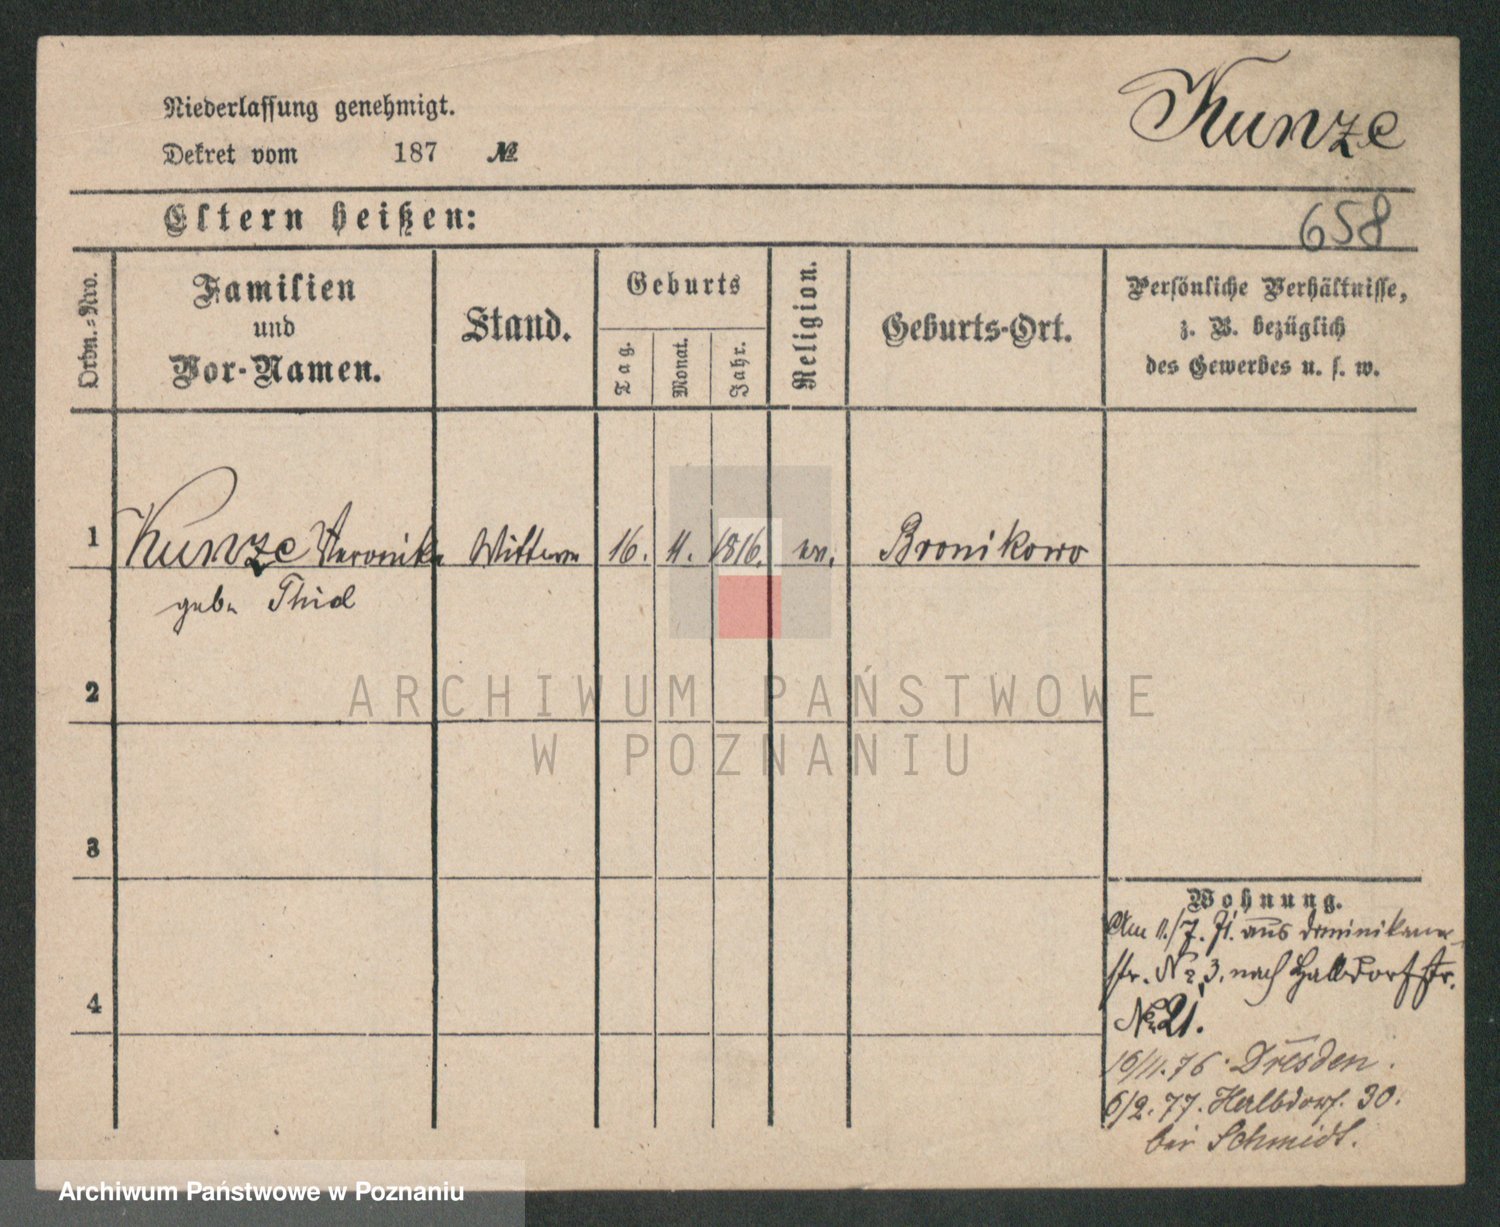 Kunze
Niederlassung genehmigt.
Dekret vom 187 №
658
Eltern heißen:
Ordn.-Nro.
Familien
und
Vor-Namen.
Stand.
Geburts
Tag.
Monat.
Jahr.
Religion.
Geburts-Ort.
Persönliche Verhältnisse,
z. B. bezüglich
des Gewerbes u. s. w.
1 Kunze Veronika Wittwe 16. 11. 1816. ev. Bronikowo
geb.
2
3
4
Wohnung.
Am 11./7. 71. aus Dominikaner-
str. No 3. nach Halbdorfstr.
No 21.
16/11. 76. Dresden.
6/2. 77. Halbdorf. 30.
bei Schmidt.
ARCHIWUM PAŃSTWOWE
W POZNANIU
Archiwum Państwowe w Poznaniu